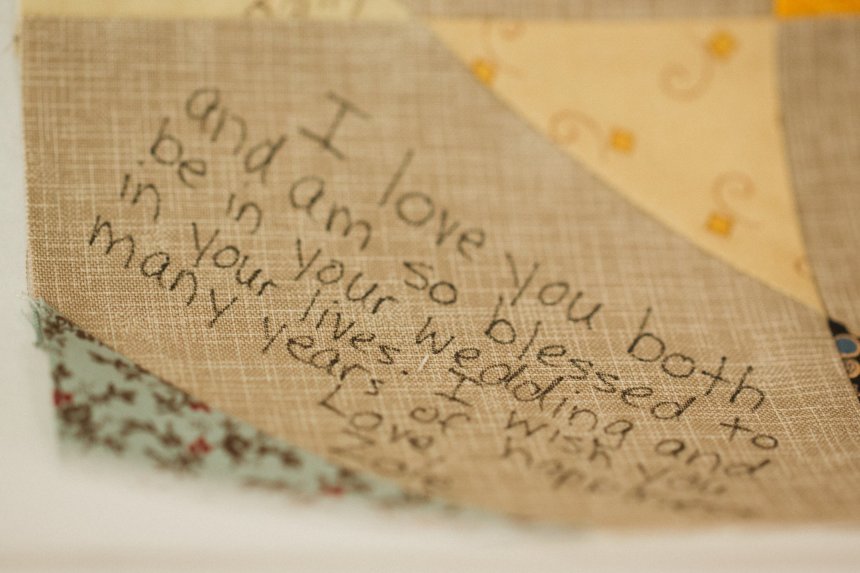 I love you both
and am so blessed to
be in your wedding and
in your lives. I wish you
many years of
Love